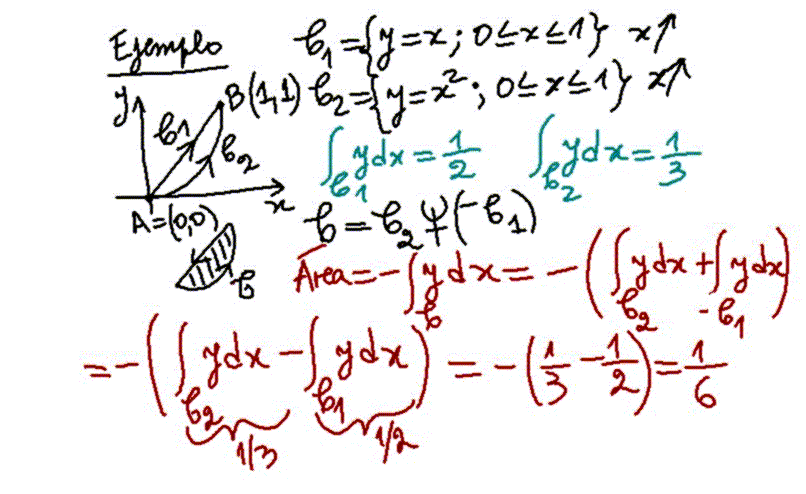 Ejemplo
𝒞₁={y=x; 0≤x≤1} x↑
𝒞₂={y=x²; 0≤x≤1} x↑
y
B(1,1)
𝒞1
𝒞2
x
A=(0,0)
𝒞
∫𝒞₁ ydx = 1/2 ∫𝒞₂ ydx = 1/3
𝒞 = 𝒞₂ ∪+ (-𝒞₁)
Área = -∫𝒞 y dx = -(∫𝒞₂ ydx + ∫-𝒞₁ ydx)
= -(∫𝒞₂ ydx - ∫𝒞₁ ydx) = -(1/3 - 1/2) = 1/6
1/3 1/2